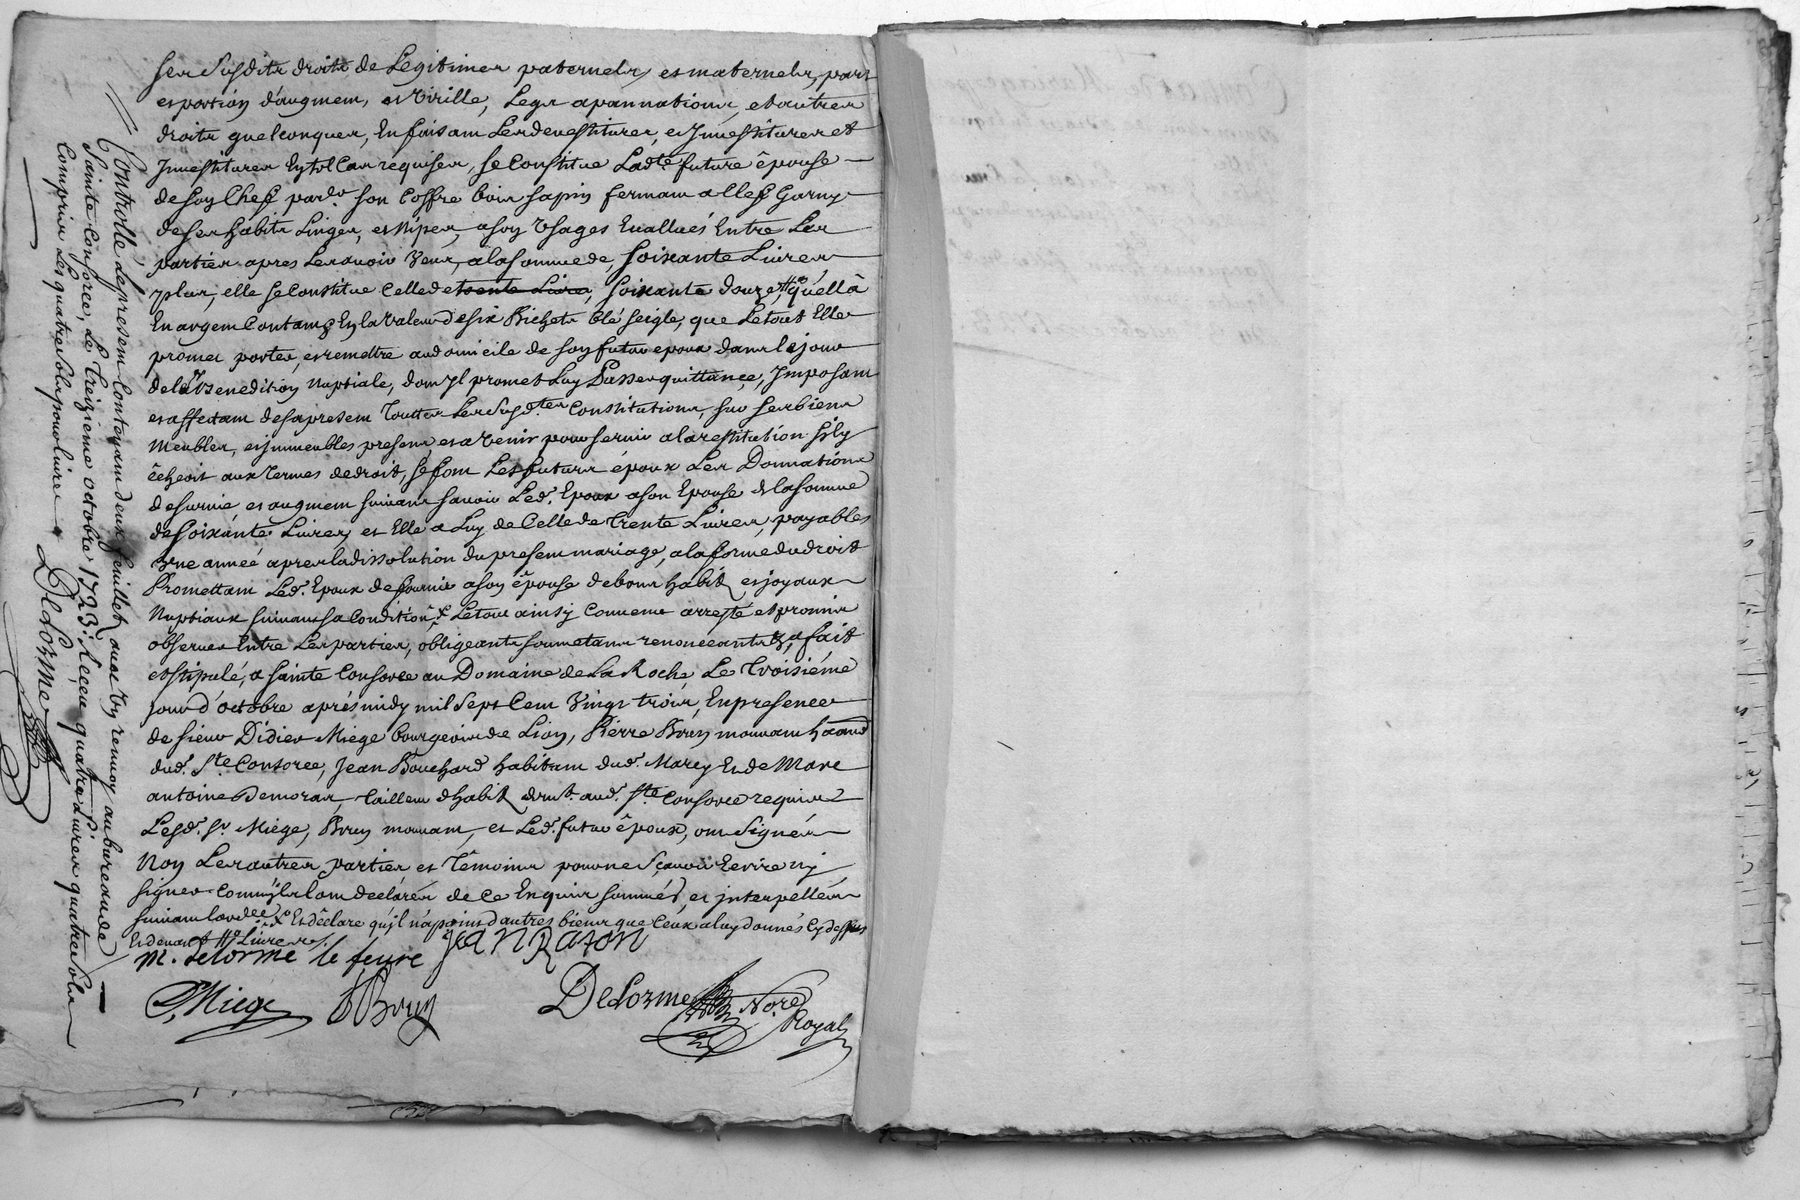 ses Susdits droits de Legitimes paternels, et maternels, part
et portion d'augment, et Virille, Legs apannations, et autres
droits quelconques, En faisant Les devestitures, et Jnvestitures et
Jnvestitures En tel Cas requises, se Constitue Lad.te future êpouse
de Son Chef par do son Coffre bois sapin fermant a Clef Garny
de ses habits Linges, et Nipes, a son Vsages Evallués Entre Les
parties apres Les avoir Veus, a la somme de, soixante Livres
plus, elle se Constitue Celle de trente Livres, soixante douze, quéll à
En argent Contant, En la valeur de six Bichets blé seigle, que Le tout Elle
promet porter, et remettre au domicile de son futur epoux dans le jour
de la Benedition Nuptiale, dont Jl promet Luy Passer quittance, Jmposant
et affectant des apresent Toutes Les Susd.tes Constitutions, sur ses biens
Meubles, et jmmeubles presens et a Venir pour servir a la restitution s'ily
êcheoit aux termes de droit, se font Les futurs époux Les Donnations
de survie, et augment suivans savoir Led. Epoux a son Epouse de la somme
de soixante Livres, et Elle a Luy de Celle de Trente Livres, payables
Vne année apres la dissolution du present mariage, a la forme du droit
Promettant Led. Epoux de fournir a son êpouse de bons habits et joyaux
Nuptiaux suivant sa Condition, Le tout ainsy Convenu arresté et promis
observer Entre Les parties, obligeants soumetans renonceants &, fait
et stipulé, a Sainte Consorce au Domaine de La Roche Le Troisiéme
jour d'octobre aprés midy mil Sept Cent Vingt trois, En presence
de sieur Didier Miege bourgeois de Lion, Pierre Brun
dud. S.te Consorce, Jean Bouchard habitant dud. Marcy Et de Marc
antoine Demoras, tailleur d'habits dem.t aud. S.te Consorce requis
Lesd. S.r Miége, Brun, et Led. futur êpoux, ont Signés
Non Les autres parties et témoins pour ne Sçavoir Ecrire ny
signer Comm'ils l'ont declarés de Ce Enquis sommés, et jnterpellés
suivant l'ord.ce Et dêclare qu'jl n'a point d'autres biens que Ceux a luy donnés Cy dessus
Et devant Livres
M. delorme le feure Jean Raton
Miege Brun Delorme No.re Royal
Controllé Le present Contenant deux feuillets avec Vn renvoy au bureau de
Sainte Consorce, Le Treizieme octobre 1723 Receu quatre Livres quatre Sols
Compris Les quatre Sols pour livre Delorme